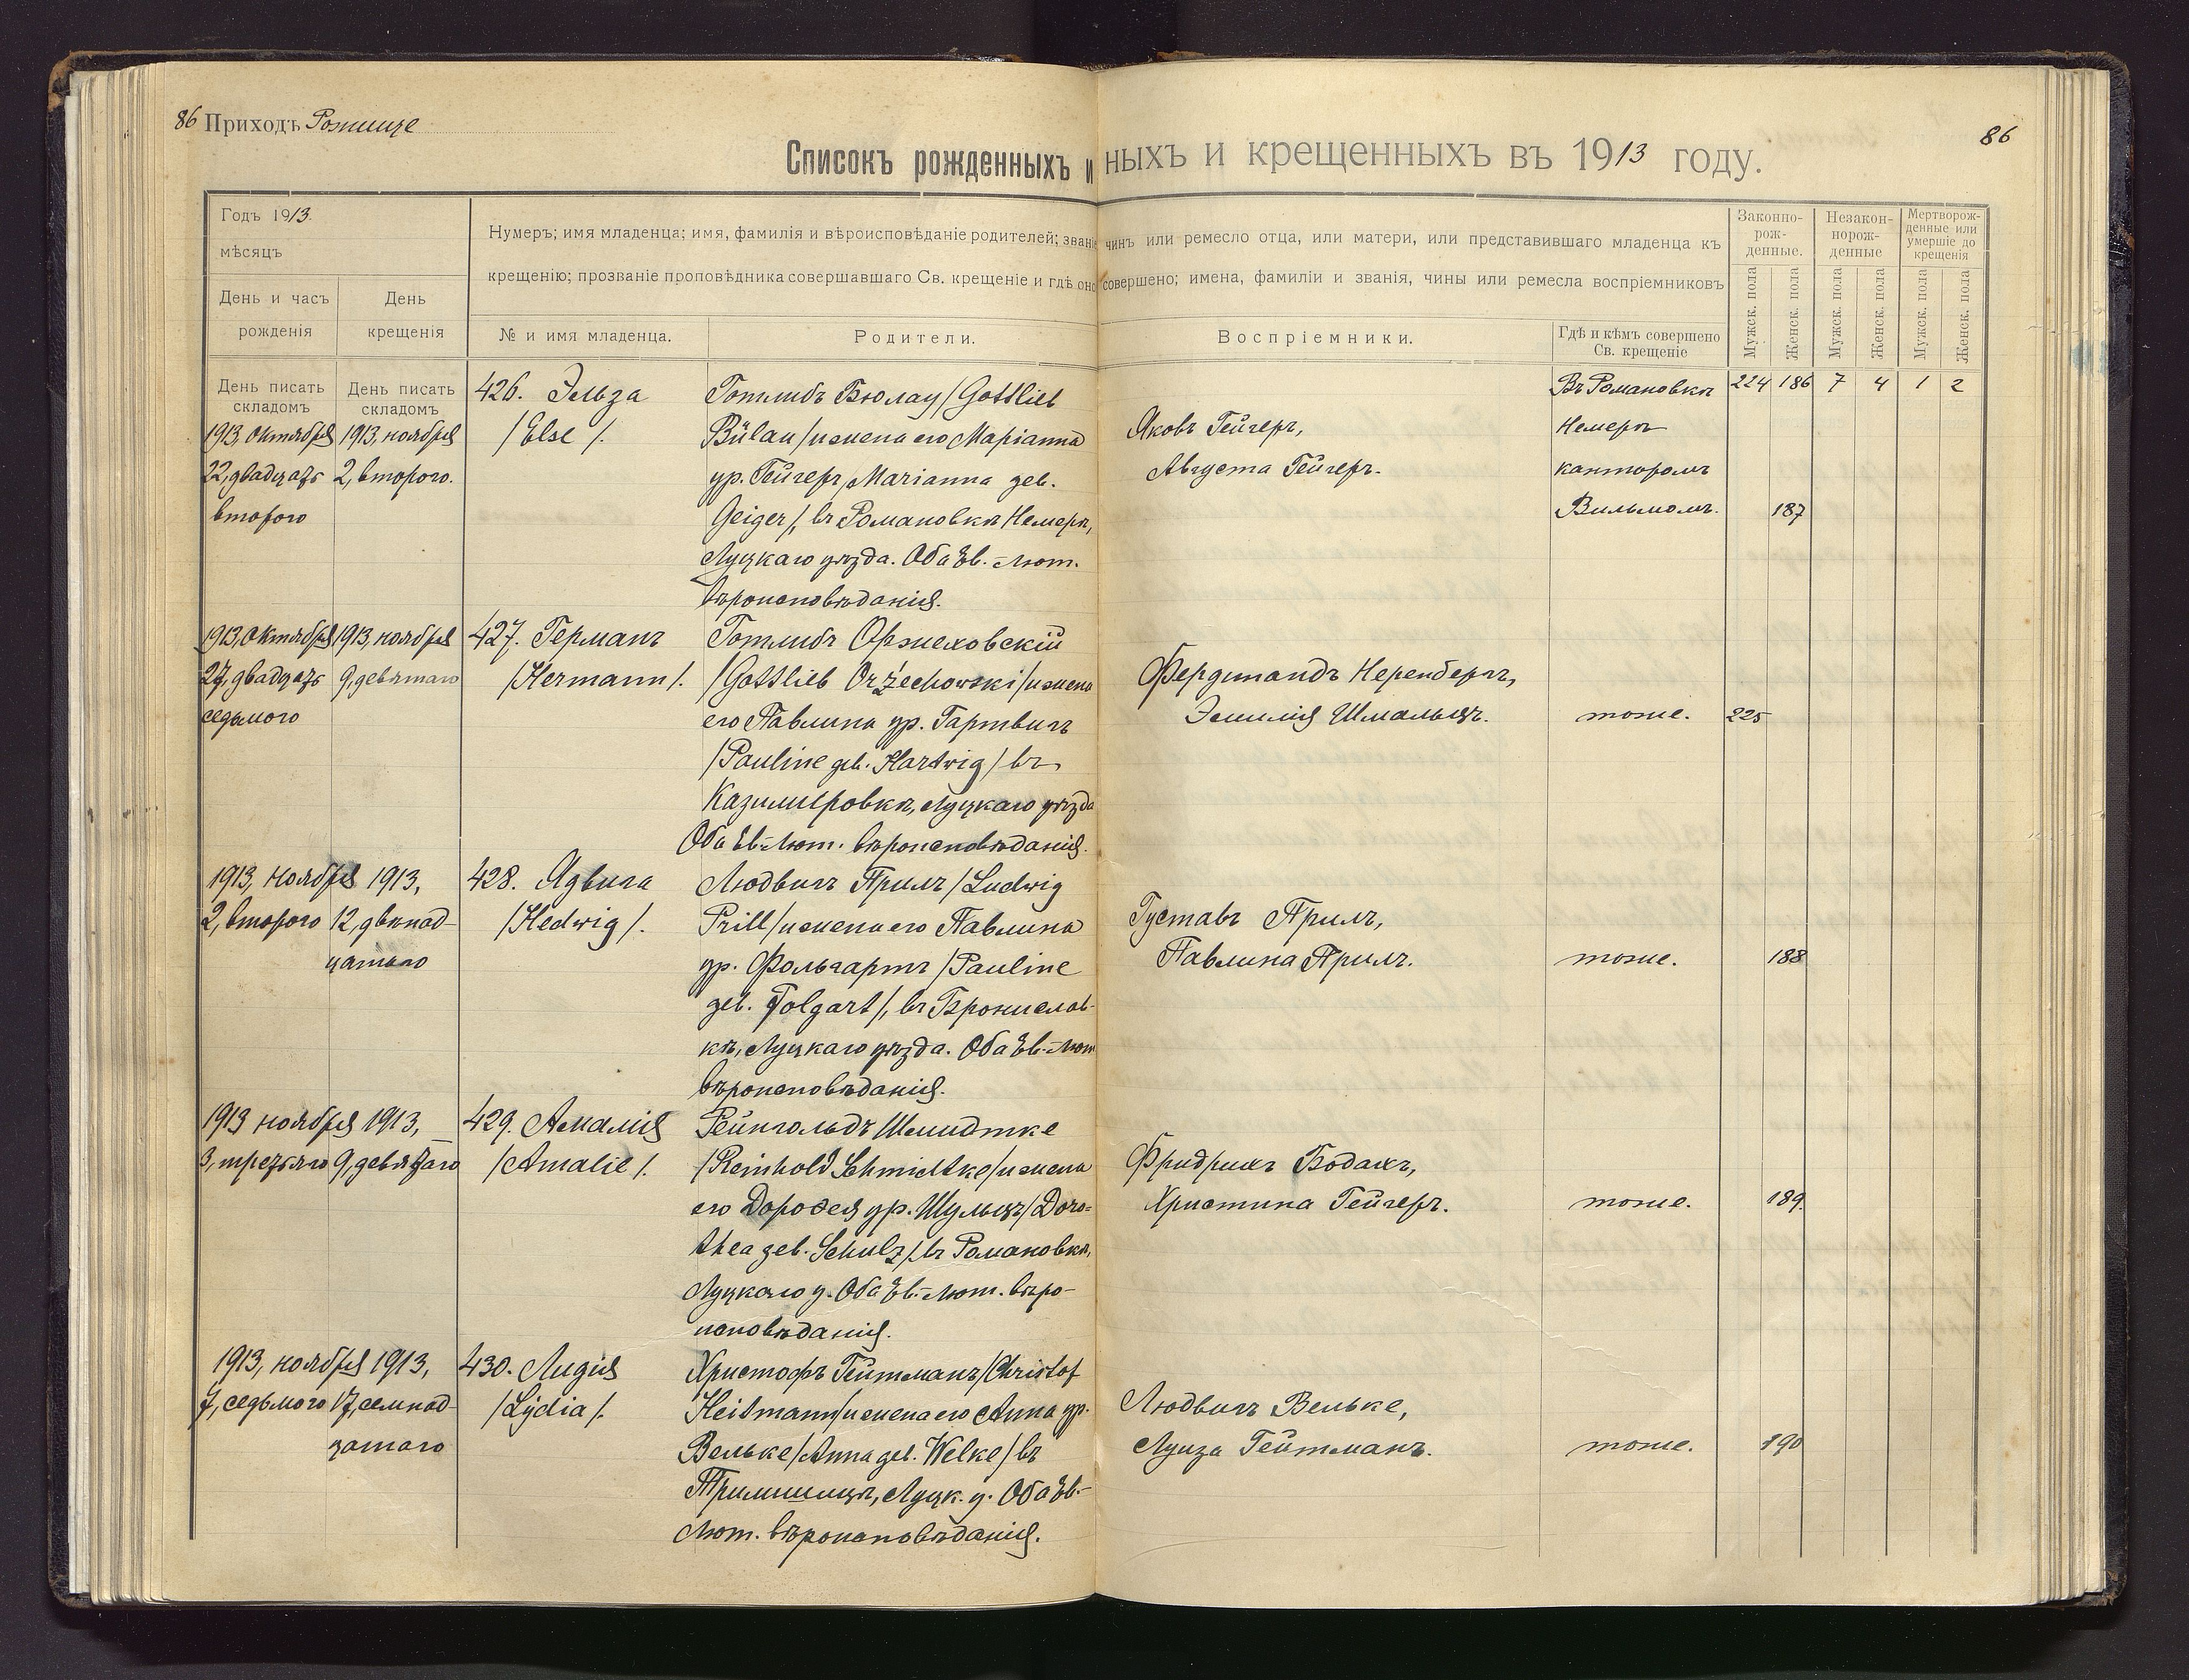 86 Приходъ Рожище
86
Списокъ рожденныхъ и
ныхъ и крещенныхъ въ 1913 году.
Годъ 1913.
мѣсяцъ
День и часъ
рожденія
День
крещенія
Нумеръ; имя младенца; имя, фамилія и вѣроисповѣданіе родителей; званіе
крещенію; прозваніе проповѣдника совершавшаго Св. крещеніе и гдѣ оно
№ и имя младенца.
Родители.
чинъ или ремесло отца, или матери, или представившаго младенца къ
совершено; имена, фамиліи и званія, чины или ремесла воспріемниковъ
Воспріемники.
Гдѣ и кѣмъ совершено
Св. крещеніе
Законно-
рож-
денные.
Незакон-
норож-
денные
Мертворож-
денные или
умершіе до
крещенія
Мужск. пола
Женск. пола
Мужск. пола
Женск. пола
Мужск. пола
Женск. пола
День писать
складомъ
День писать
складомъ
1913, октября
22, двадцать
второго
1913, ноября
2, второго.
426. Эльза
/Else/.
Готлибъ Бюлау /Gottlieb
Bülau/ и жена его Маріанна
ур. Гейгеръ /Marianna geb.
Geiger/, въ Романовкѣ Немеръ,
Луцкаго уѣзда. Оба Ев.-Лют.
вѣроисповѣданія.
Яковъ Гейгеръ,
Августа Гейгеръ.
Въ Романовкѣ
Немеръ
канторомъ
Вильмомъ.
224 186 7 4 1 2
187
1913, октября
27, двадцать
седьмого
1913, ноября
9, девятаго
427. Германъ
/Hermann/.
Готлибъ Оржеховскій
/Gottlieb Orżechowski/ и жена
его Павлина ур. Гартвигъ
/Pauline geb. Hartwig/ въ
Казимировкѣ, Луцкаго уѣзда
Оба Ев.-Лют. вѣроисповѣданія.
Фердинандъ Неренбергъ,
Эмилія Шмальцъ.
тоже.
225
1913, ноября
2, второго
1913,
12, двѣнад-
цатаго
428. Ядвига
/Hedwig/.
Людвигъ Прилъ /Ludwig
Prill/ и жена его Павлина
ур. Фольгартъ /Pauline
geb. Folgart/, въ Бронислав-
кѣ, Луцкаго уѣзда. Оба Ев.-Лют
вѣроисповѣданія.
Густавъ Прилъ,
Павлина Прилъ.
тоже.
188
1913 ноября
3, третьяго
1913,
9, девятаго
429. Амалія
/Amalie/.
Рейнгольдъ Шмидтке
/Reinhold Schmidtke/ и жена
его Доротея ур. Шульцъ /Doro=
thea geb. Schulz/, въ Романовкѣ,
Луцкаго у. Оба Ев.-Лют. вѣро-
исповѣданія.
Фридрихъ Бодахъ,
Христина Гейгеръ.
тоже.
189.
1913, ноября
7, седьмого
1913,
17, семнад-
цатаго
430. Лидія
/Lydia/.
Христофъ Гейтманъ /Christof
Heitmann/ и жена его Анна ур.
Вельке /Anna geb. Welke/ въ
Тримишицѣ, Луцк. у. Оба Ев.-
Лют. вѣроисповѣданія.
Людвигъ Вельке,
Луиза Гейтманъ.
тоже.
190